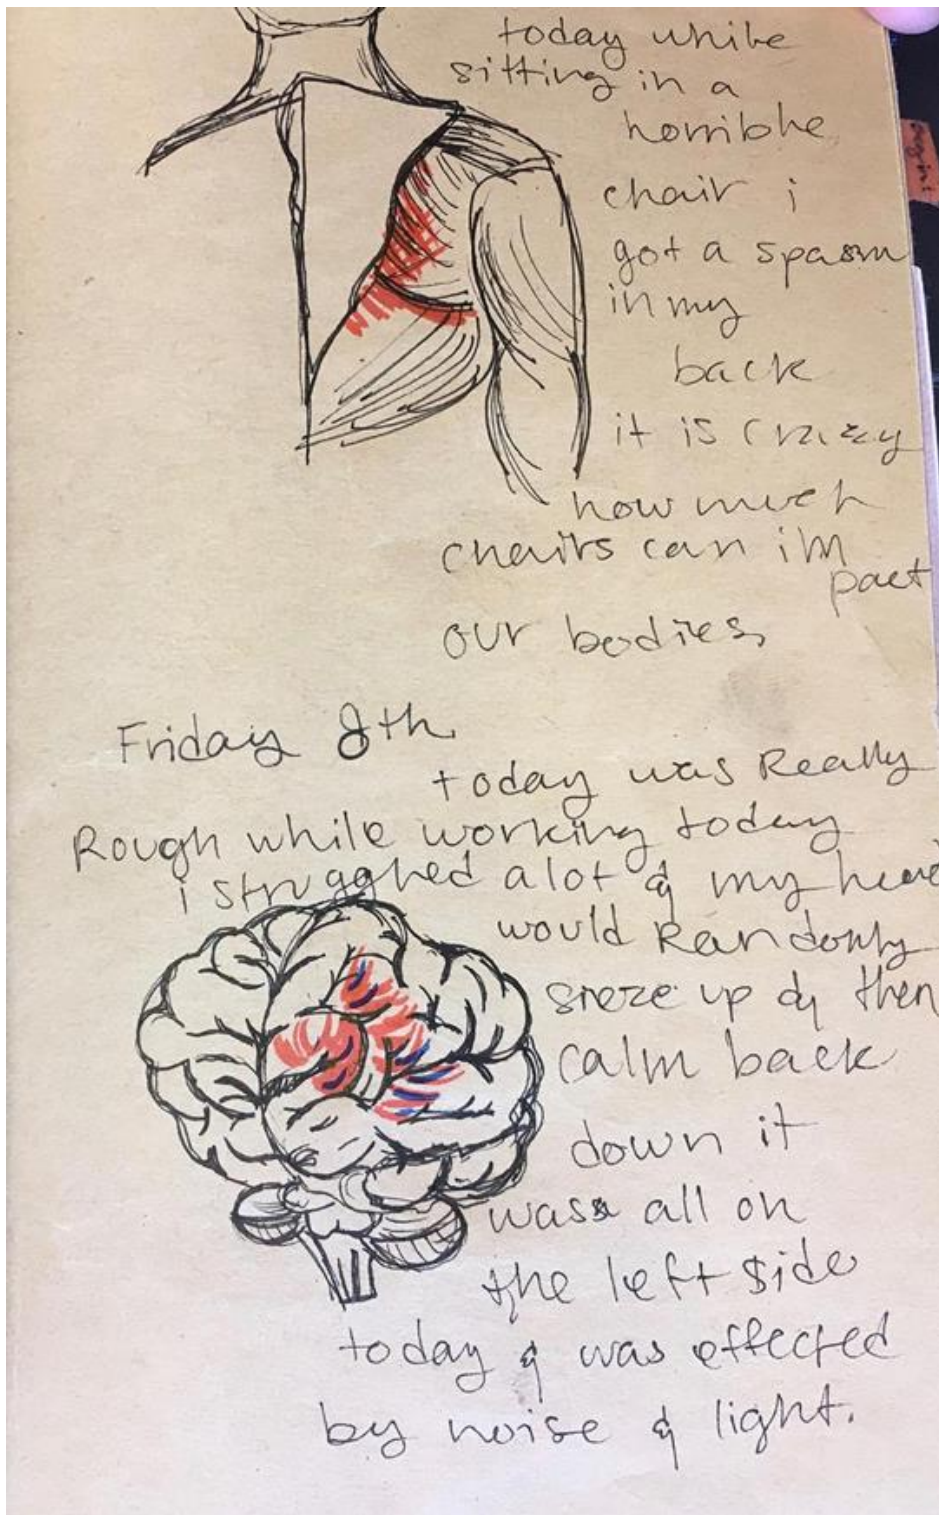 today while
sitting in a
horribhe
chair i
got a spasm
in my
back
it is crazy
how much
chairs can im
pact
our bodies,
Friday 8th
today was Really
Rough while working today
i strugghed alot & my head
would Randomly
sieze up & then
calm back
down it
was all on
the left side
today & was effected
by noise & light.